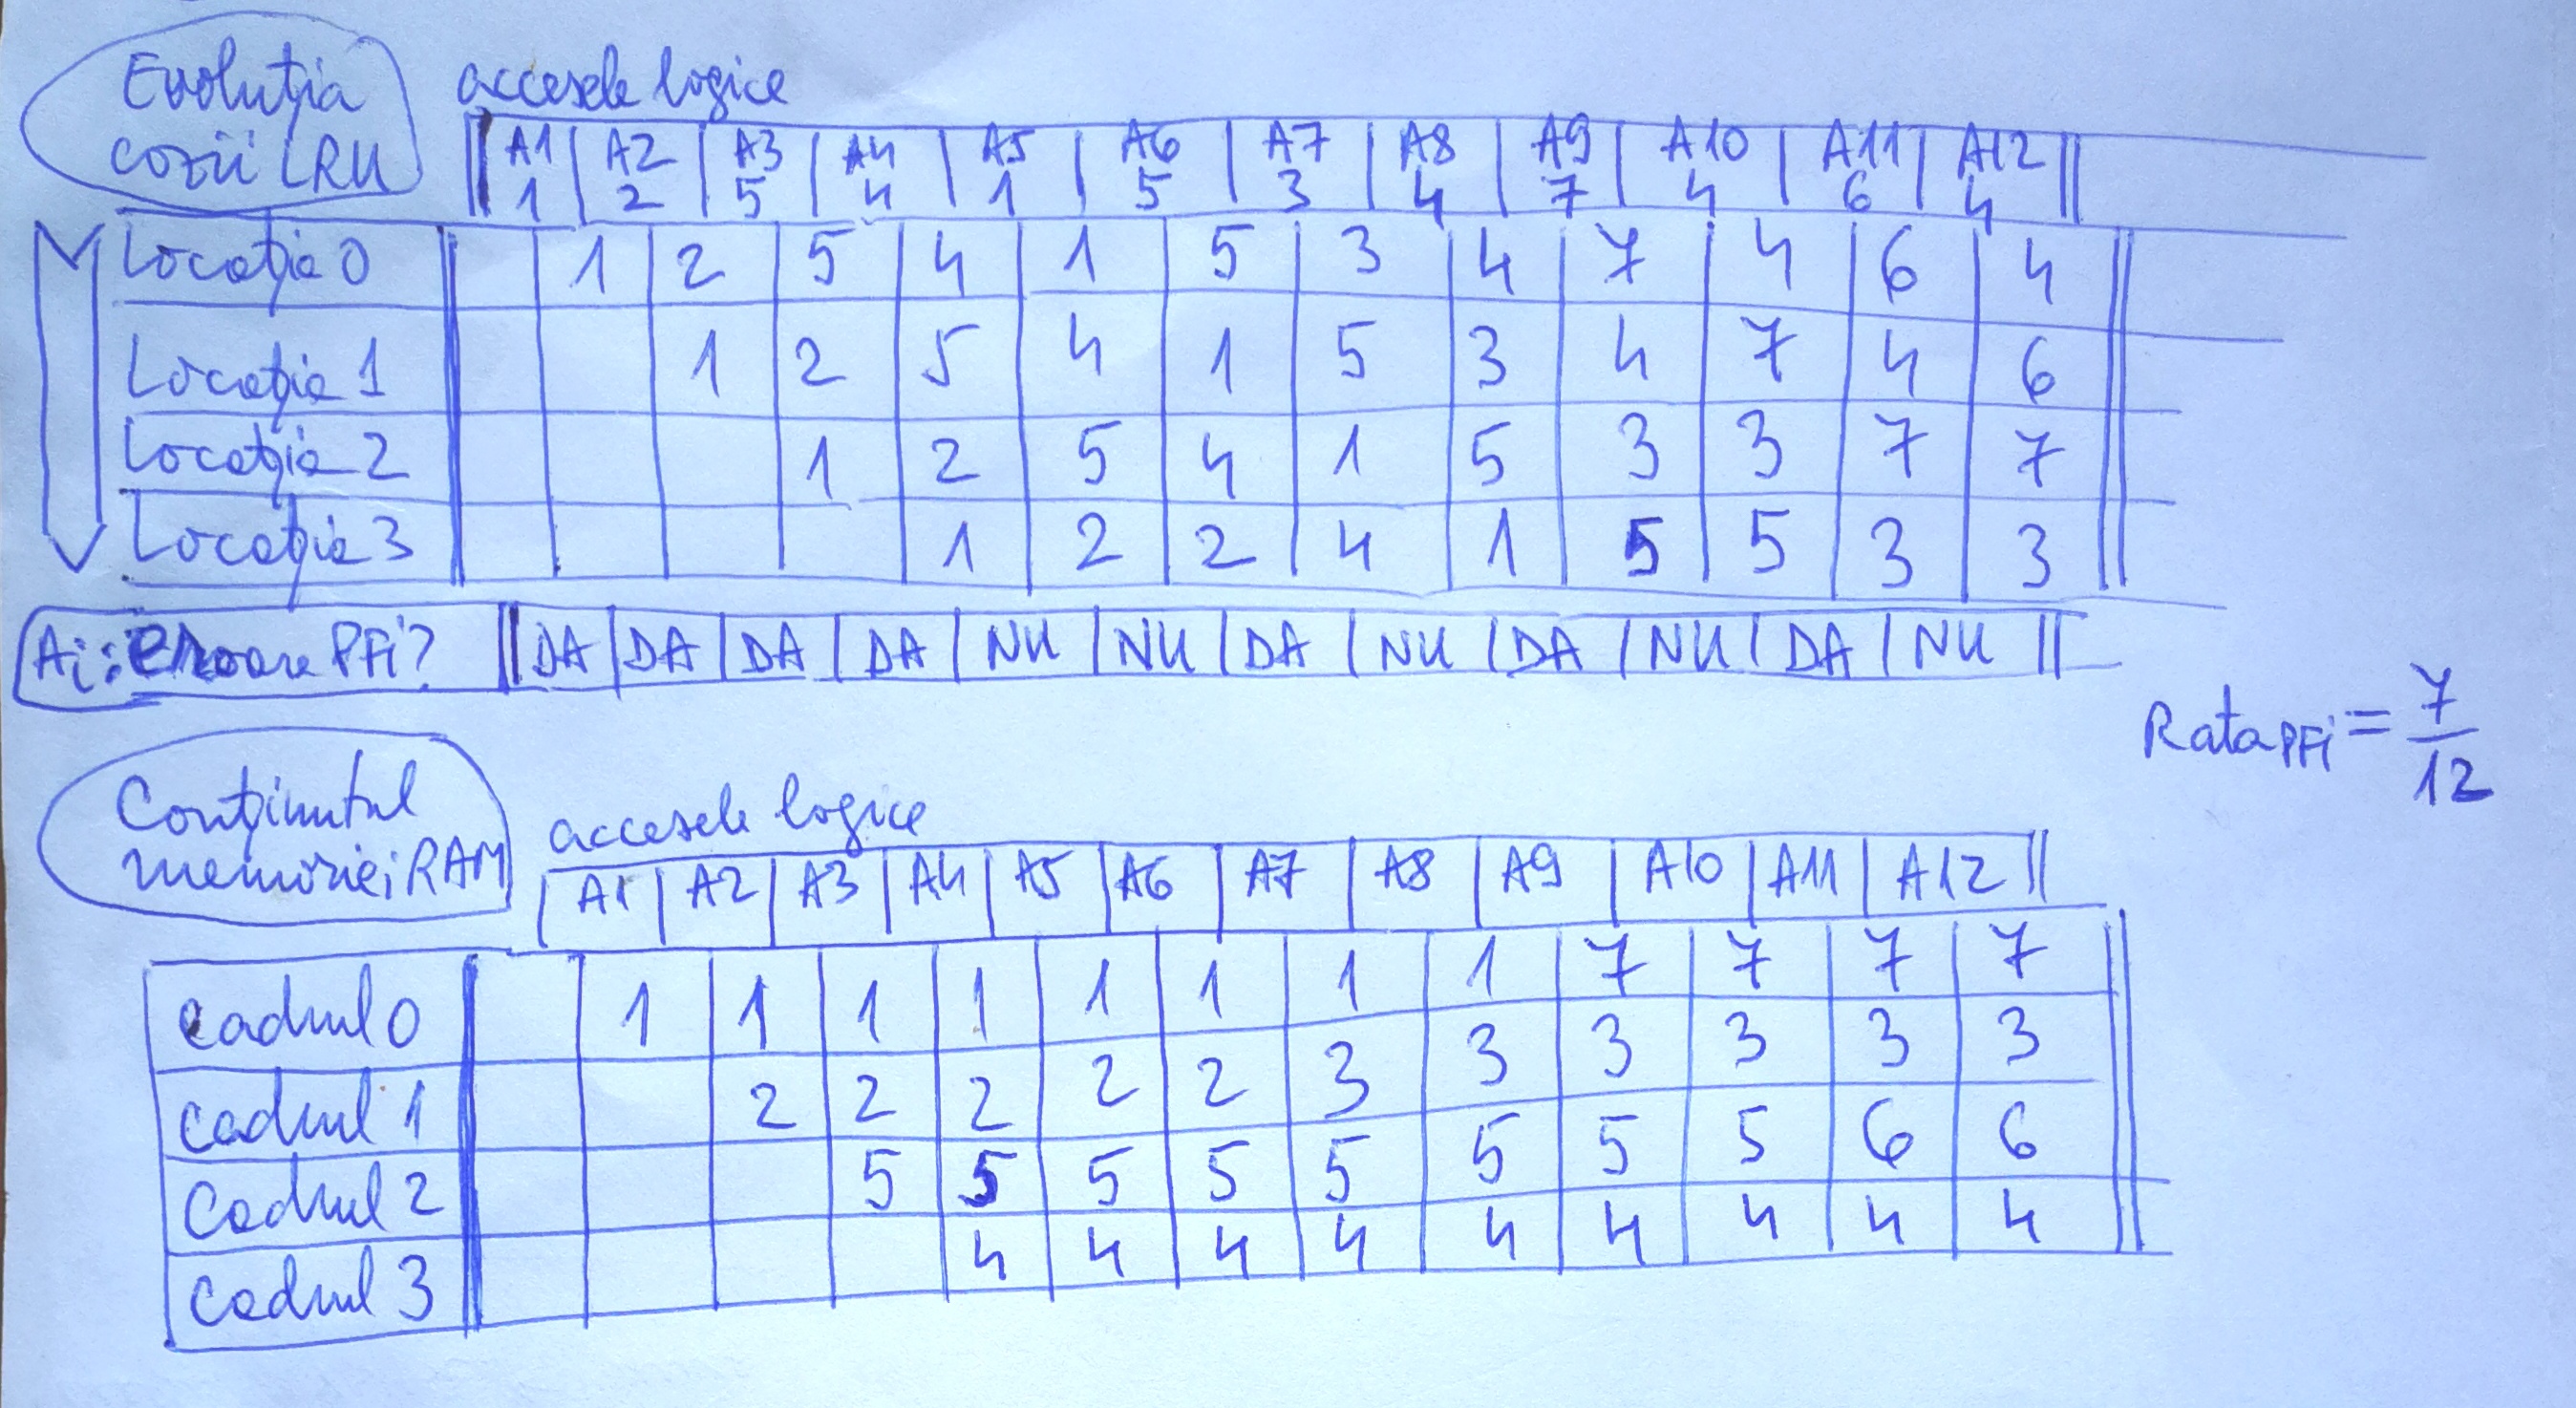 Evoluția
cozii LRU
accesele logice
A1 A2 A3 A4 A5 A6 A7 A8 A9 A10 A11 A12
1 2 5 4 1 5 3 4 7 4 6 4
Locația 0 1 2 5 4 1 5 3 4 7 4 6 4
Locația 1 1 2 5 4 1 5 3 4 7 4 6
Locația 2 1 2 5 4 1 5 3 3 7 7
Locația 3 1 2 2 4 1 5 5 3 3
Ai: eroare PFi? DA DA DA DA NU NU DA NU DA NU DA NU
Rata PFi = 7/12
Conținutul
memoriei RAM
accesele logice
A1 A2 A3 A4 A5 A6 A7 A8 A9 A10 A11 A12
cadrul 0 1 1 1 1 1 1 1 1 7 7 7 7
cadrul 1 2 2 2 2 2 3 3 3 3 3 3
cadrul 2 5 5 5 5 5 5 5 5 6 6
cadrul 3 4 4 4 4 4 4 4 4 4